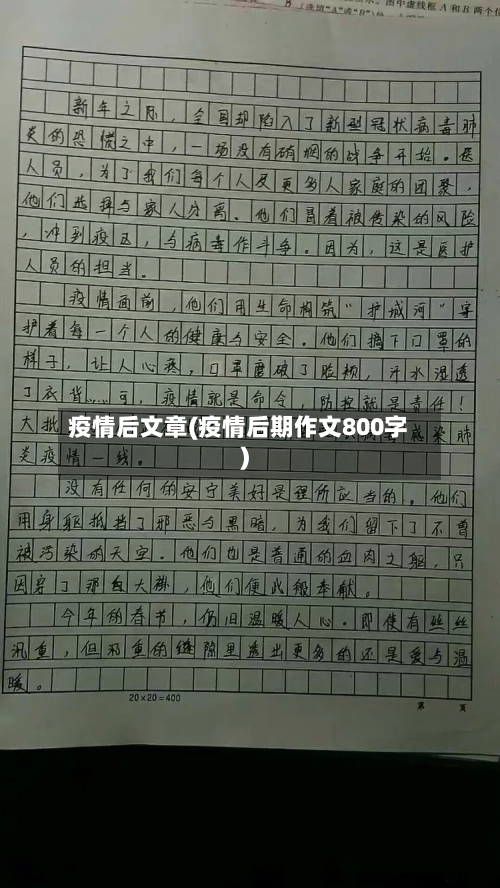 新年之际，全国却陷入了新型冠状病毒肺
炎的恐慌之中，一场没有硝烟的战争开始。医
人员，为了我们每个人及更多人家庭的团聚，
他们选择与家人分离。他们冒着被传染的风险
，冲到疫区，与病毒作斗争。因为，这是医护
人员的担当。
疫情面前，他们用生命构筑“护城河”守
护着每一个人的健康与安全。他们摘下口罩的
样子，让人心疼，口罩磨破了脸颊，汗水湿透
了衣背……可，疫情就是命令，防控就是责任！
大批
疫情后文章(疫情后期作文800字
)
感染肺
炎疫情一线。
没有任何的安宁美好是理所应当的。他们
用身躯抵挡了邪恶与黑暗，为我们留下了不曾
被污染的天空。他们也是普通的血肉之躯，只
因穿了那白大褂，他们便此般奉献。
今年的春节，仍旧温暖人心。即使有丝丝
沉重，但沉重的缝隙里透出更多的还是爱与温
暖。
20×20=400
第 页